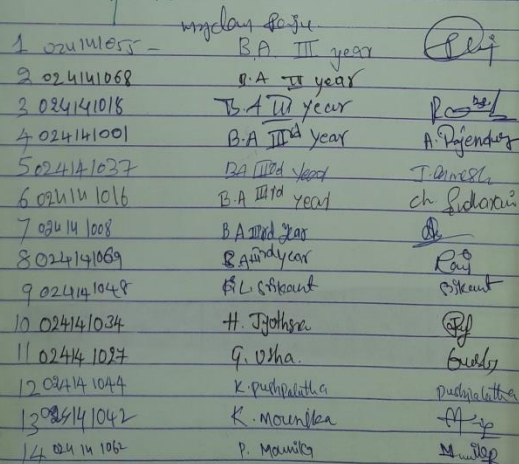 1 024141055 - B.A. III year
2 024141068 B.A III year
3 024141018 B.A III year
4 024141001 B.A IIIrd year A. Rajender
5 024141037 BA IIIrd year J. Ramesh
6 024141016 B.A IIIrd year ch Sudharani
7 024141008 BA IIIrd year
8 024141069 BA IIIrd year Raj
9 024141048 B.L Srikant Srikant
10 024141034 H. Jyothsna
11 024141027 G. Usha.
12 024141044 K. pushpalatha pushpalatha
13 024141042 K. Mounika
14 024141062 P. Mounika